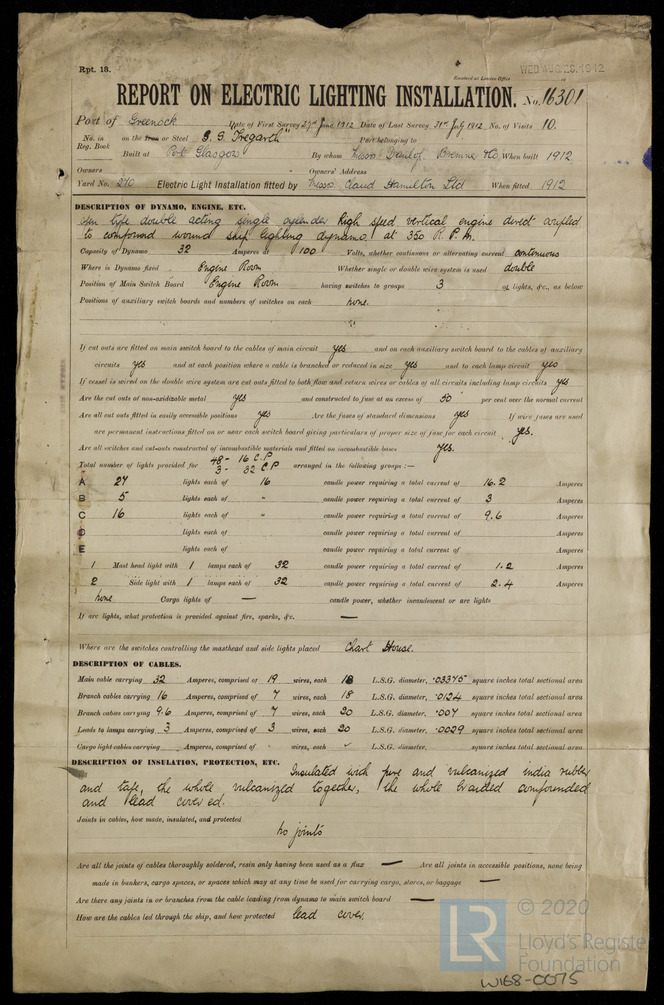 Rpt. 18.
WED AUG 28 1912
Received at London Office
REPORT ON ELECTRIC LIGHTING INSTALLATION. No. 16301
Port of Greenock Date of First Survey 27th June 1912 Date of Last Survey 31st July 1912 No. of Visits 10.
No. in Reg. Book on the Iron or Steel S.S. "Tregarth" Port belonging to
Built at Port Glasgow By whom Messrs Dunlop Bremner & Co When built 1912
Owners Owners' Address
Yard No. 270 Electric Light Installation fitted by Messrs. Claud Hamilton Ltd When fitted 1912
DESCRIPTION OF DYNAMO, ENGINE, ETC.
open type double acting single cylinder high speed vertical engine direct coupled
to compound wound ship lighting dynamo at 350 R.P.M.
Capacity of Dynamo 32 Amperes at 100 Volts, whether continuous or alternating current continuous
Where is Dynamo fixed Engine Room Whether single or double wire system is used double
Position of Main Switch Board Engine Room having switches to groups 3 of lights, &c., as below
Positions of auxiliary switch boards and numbers of switches on each none.
If cut outs are fitted on main switch board to the cables of main circuit yes and on each auxiliary switch board to the cables of auxiliary
circuits yes and at each position where a cable is branched or reduced in size yes and to each lamp circuit yes
If vessel is wired on the double wire system are cut outs fitted to both flow and return wires or cables of all circuits including lamp circuits yes
Are the cut outs of non-oxidizable metal yes and constructed to fuse at an excess of 50 per cent over the normal current
Are all cut outs fitted in easily accessible positions yes Are the fuses of standard dimensions yes If wire fuses are used
are permanent instructions fitted on or near each switch board giving particulars of proper size of fuse for each circuit yes.
Are all switches and cut-outs constructed of incombustible materials and fitted on incombustible bases yes.
Total number of lights provided for 48 - 16 C.P 3 - 32 C.P arranged in the following groups :—
A 27 lights each of 16 candle power requiring a total current of 16.2 Amperes
B 5 lights each of " candle power requiring a total current of 3 Amperes
C 16 lights each of " candle power requiring a total current of 9.6 Amperes
D lights each of candle power requiring a total current of Amperes
E lights each of candle power requiring a total current of Amperes
1 Mast head light with 1 lamps each of 32 candle power requiring a total current of 1.2 Amperes
2 Side light with 1 lamps each of 32 candle power requiring a total current of 2.4 Amperes
none Cargo lights of — candle power, whether incandescent or arc lights
If arc lights, what protection is provided against fire, sparks, &c. —
Where are the switches controlling the masthead and side lights placed Chart House.
DESCRIPTION OF CABLES.
Main cable carrying 32 Amperes, comprised of 19 wires, each 18 L.S.G. diameter, .03375 square inches total sectional area
Branch cables carrying 16 Amperes, comprised of 7 wires, each 18 L.S.G. diameter, .0124 square inches total sectional area
Branch cables carrying 9.6 Amperes, comprised of 7 wires, each 20 L.S.G. diameter, .007 square inches total sectional area
Leads to lamps carrying 3 Amperes, comprised of 3 wires, each 20 L.S.G. diameter, .0029 square inches total sectional area
Cargo light cables carrying Amperes, comprised of wires, each L.S.G. diameter, square inches total sectional area
DESCRIPTION OF INSULATION, PROTECTION, ETC.
Insulated with pure and vulcanized india rubber
and tape, the whole vulcanized together, the whole braided compounded
and lead covered.
Joints in cables, how made, insulated, and protected
no joints
Are all the joints of cables thoroughly soldered, resin only having been used as a flux — Are all joints in accessible positions, none being
made in bunkers, cargo spaces, or spaces which may at any time be used for carrying cargo, stores, or baggage —
Are there any joints in or branches from the cable leading from dynamo to main switch board —
How are the cables led through the ship, and how protected lead cover.
LR © 2020
Lloyd's Register
Foundation
W168-0075